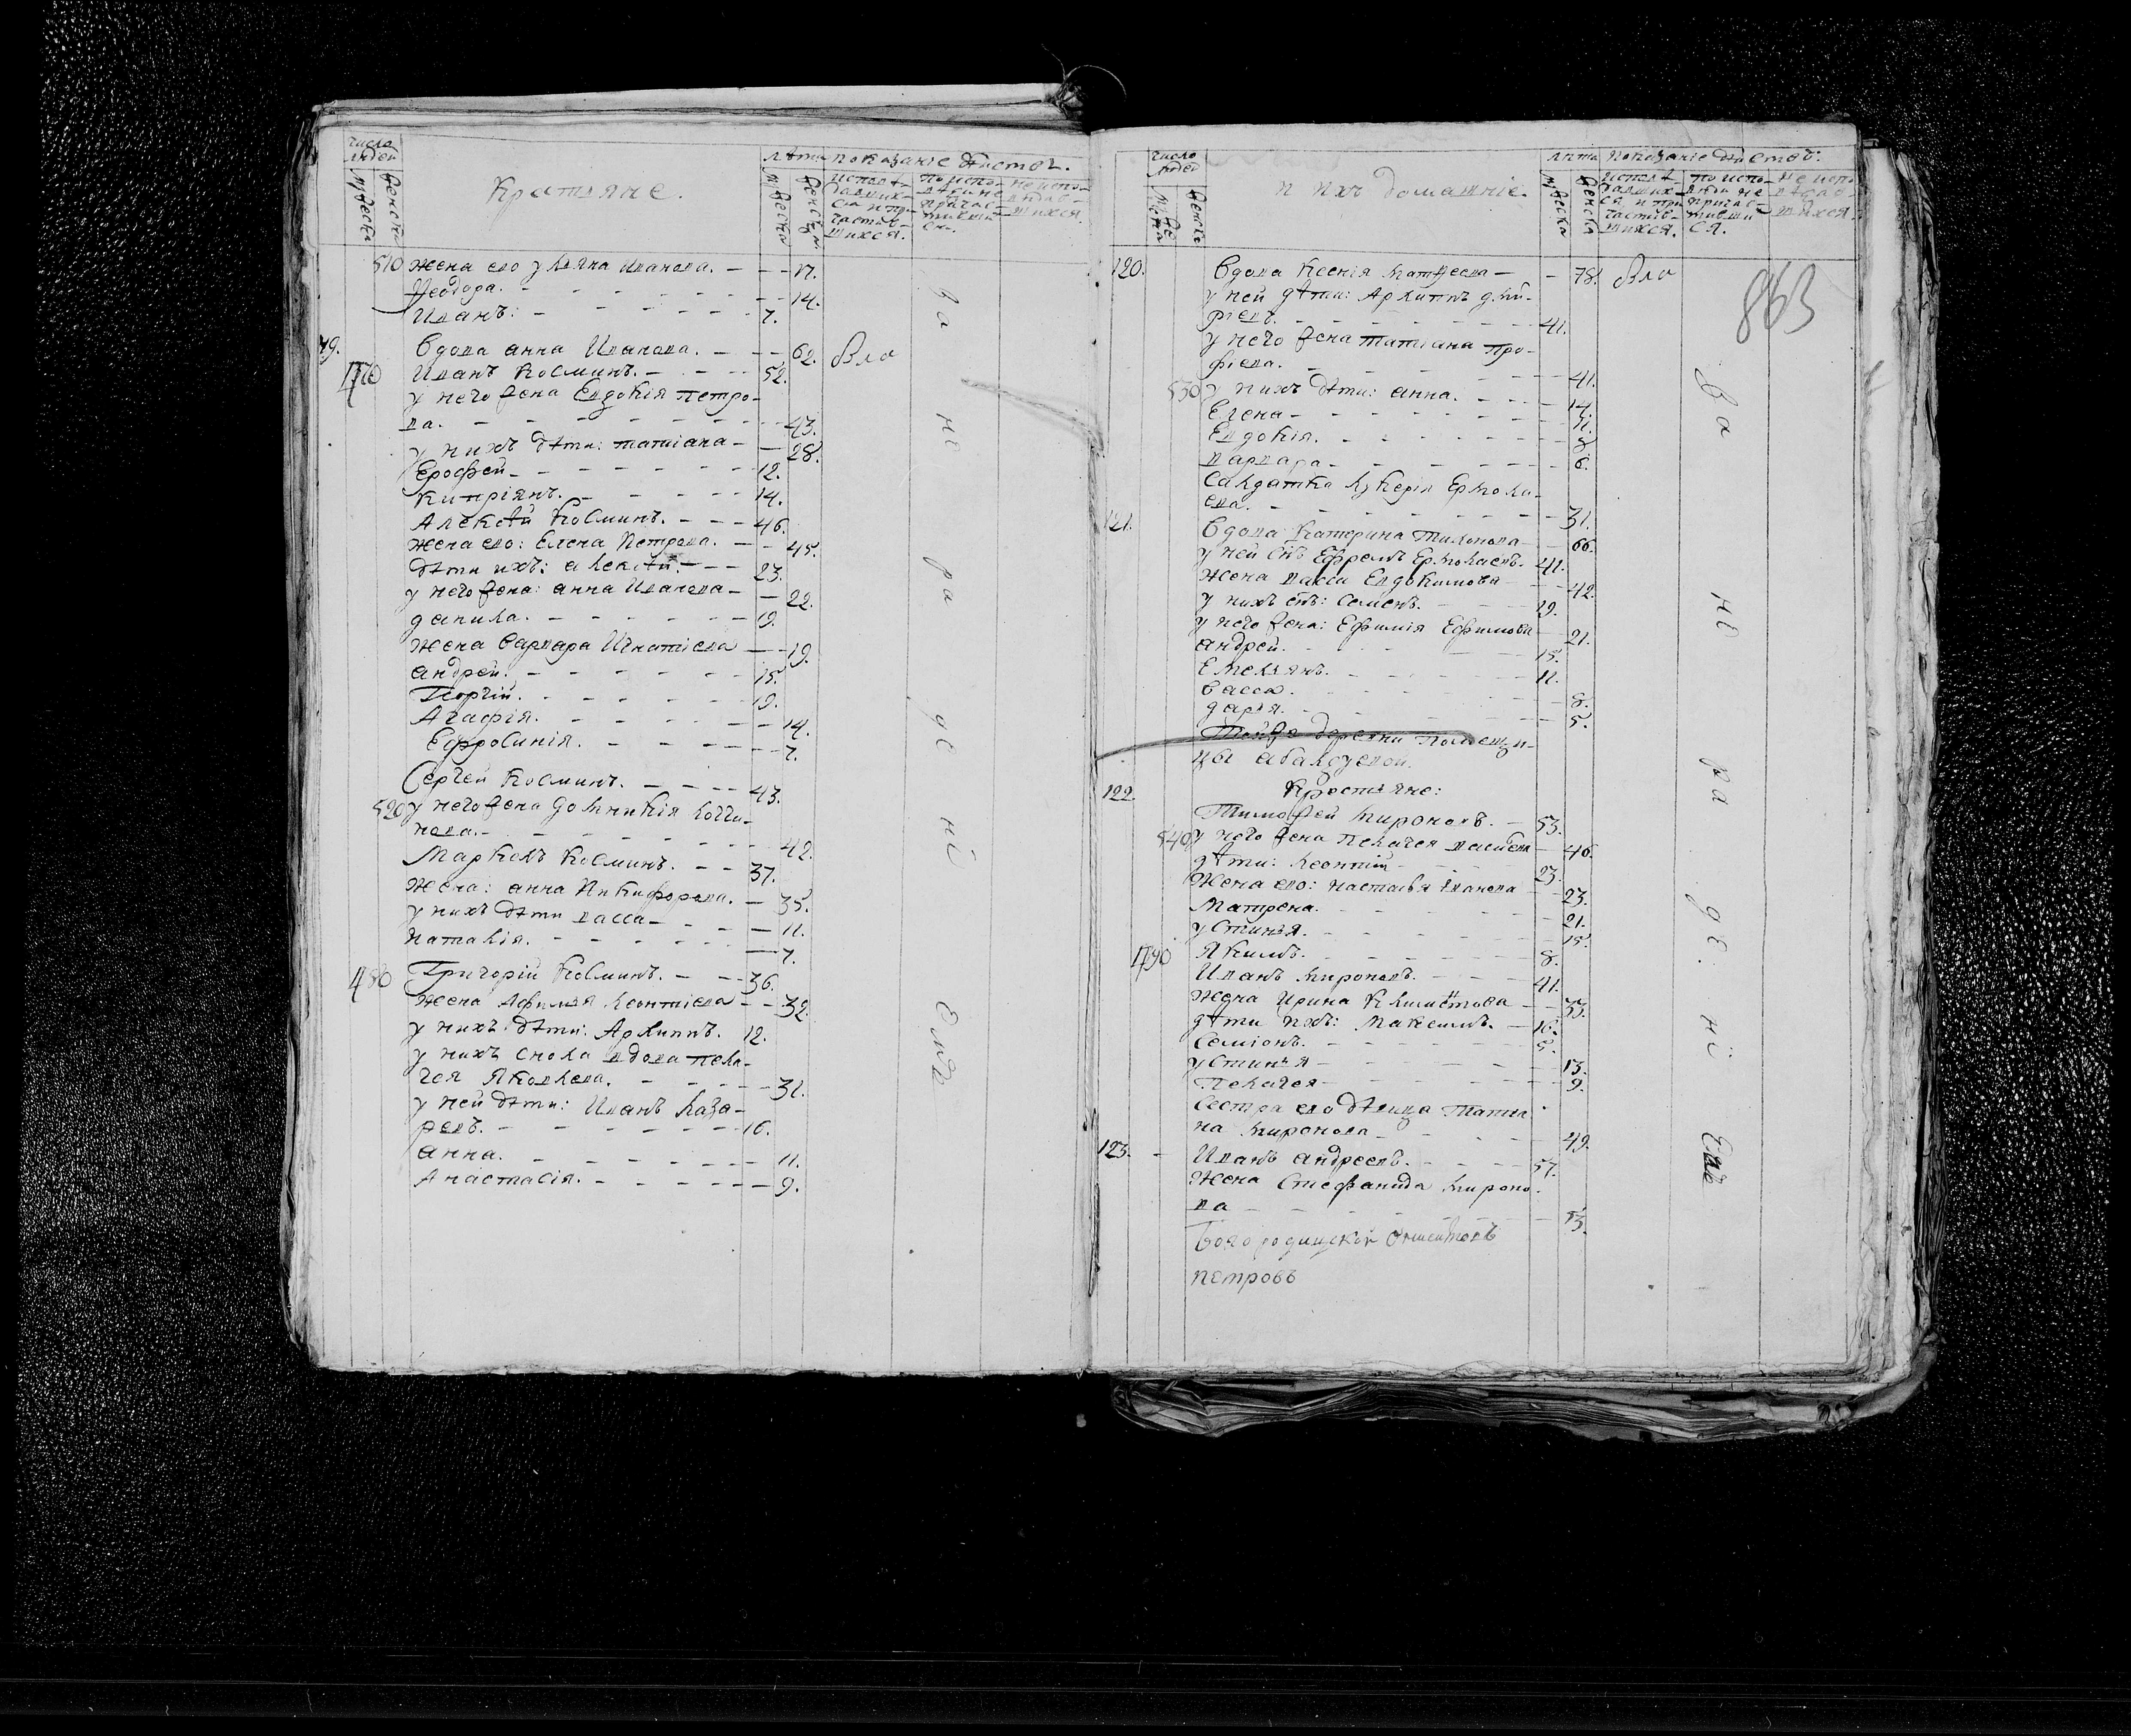 число людей
мужеска
женска
Крестьяне.
лѣта
мужеска
женска
показанїе дѣйствъ.
исповѣ-
давших-
ся и при-
частив-
шихся.
по испо-
вѣди не
причас-
тивши
ся.
не испо-
вѣдав-
шихся.
510 жена ево ульяна иванова. 17.
Ѳеодора. 14.
Иванъ: 7.
Вдова анна Иванова. 62. Бло
1770 Иванъ Косминъ. 52.
у него жена Евдокїя петро-
ва. 43.
у нихъ дѣти: татїана 28.
Ерофей 12.
Кипрїянъ. 14.
Алексѣй Косминъ. 46.
жена ево: Елена Петрова. 45.
дѣти ихъ: алексѣй. 23.
у него жена: анна Иванова 22.
данила. 19.
жена Варвара Игнатїева 19.
андрей. 15.
Георгїй. 19.
Агафїя. 14.
Ефросинїя. 7.
Сергей Косминъ. 43.
520 у него жена Домникїя логги-
нова. 42.
Маркелъ Косминъ. 37.
жена: анна Никифорова. 35.
у нихъ дѣти васса 11.
наталїя. 7.
Григорїй Косминъ. 36.
жена Афимья леонтїева 32.
у нихъ дѣти: Архиппъ. 12.
у нихъ сноха вдова пела-
гея Яковлева. 31.
у ней дѣти: Иванъ Лаза-
ревъ. 16.
анна. 11.
Анастасїя. 9.
число людей
и ихъ домашнїе.
лѣта
показанїе дѣйствъ.
исповѣ-
давших-
ся и при
частив-
шихся.
по испо-
вѣди не
причас-
тивши
ся.
не испо-
вѣдав-
шихся.
863
120. Вдова Ксенїя матѳеева 78. Бло
у ней дѣти: Архиппъ дми-
рїевъ. 41.
у него жена татїана про-
фїева. 41.
530 у нихъ дѣти: анна. 14.
Елена 11.
Евдокїя. 8
варвара 6.
Салдатка лукерїя Ермола-
ева. 31.
121. Вдова Катерина тихонова 66.
у ней снъ Ефремъ Ермолаевъ. 41.
жена васса Евдокимова 42.
у нихъ снъ: Семенъ. 19.
у него жена: Ефимїя Ефимова 21.
андрей. 15.
Емельянъ. 11.
Васса. 8.
дарья. 5.
Той же деревни помещи-
цы
122. Крестьяне:
Тимоѳей Мироновъ. 53.
540 у него жена Пелагея васильева 46.
дѣти: леонтїй 23.
жена ево: настасья иванова 23.
Матрена. 21.
устинья. 15.
1790 Якимъ. 8.
Иванъ мироновъ. 41.
жена Ирина Климентова 33.
дѣти ихъ: Максимъ. 16.
Семїонъ. 5.
устинья 13.
Пелагея 9.
Сестра ево дѣвица Татїа
на миронова 49.
123. Иванъ андреевъ. 57.
жена Стефанида мироно-
ва 53.
Богородицкой
петровъ